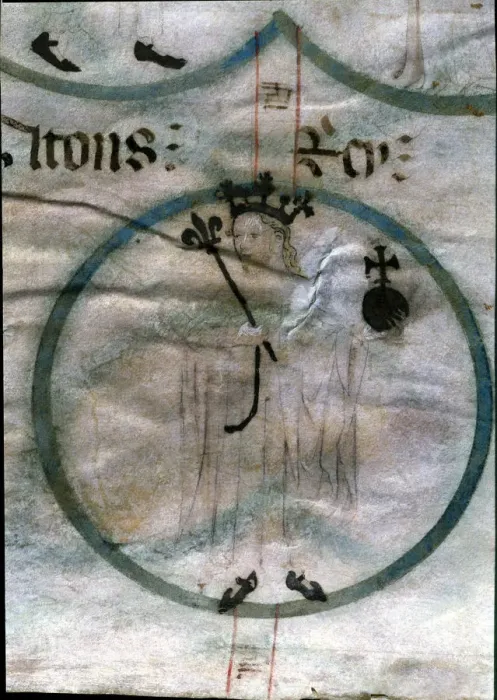 lfons : Rey :